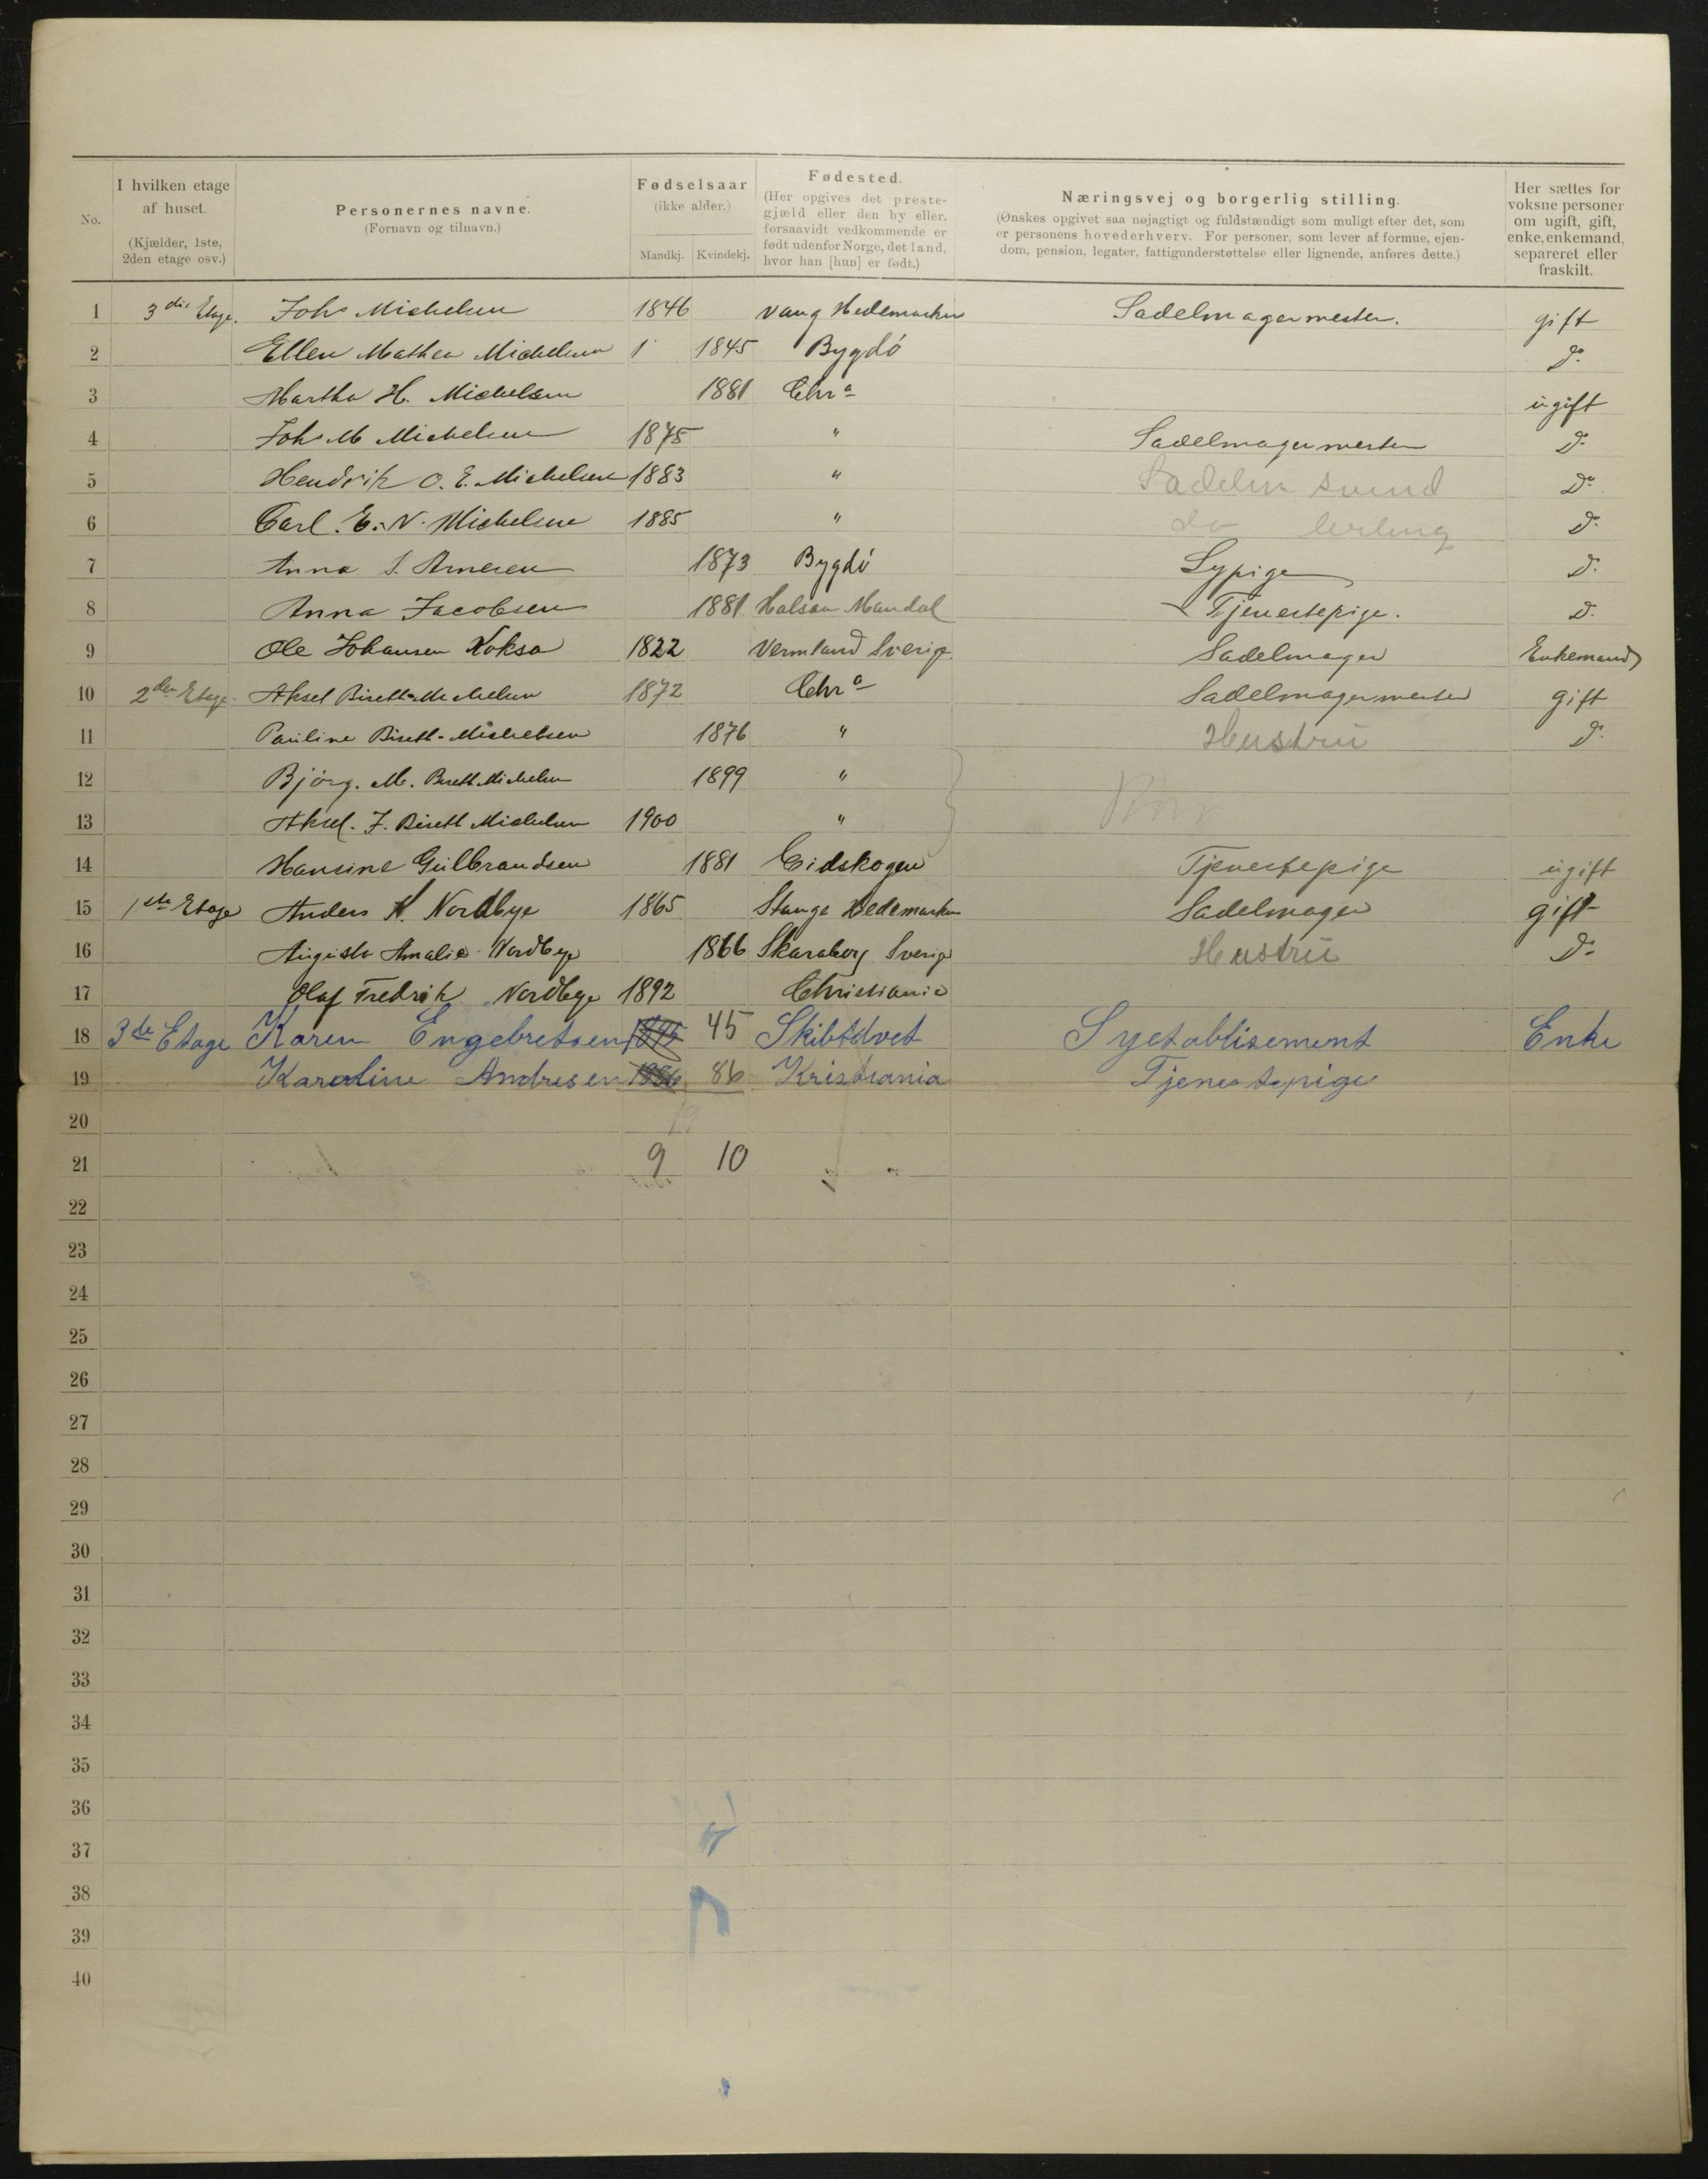 No. | I hvilken etage af huset. (Kjælder, 1ste, 2den etage osv.) | Personernes navne. (Fornavn og tilnavn.) | Fødselsaar (ikke alder.) Mandkj. Kvindekj. | Fødested. (Her opgives det prestegjæld eller den by eller, forsaavidt vedkommende er født udenfor Norge, det land, hvor han [hun] er født.) | Næringsvej og borgerlig stilling. (Ønskes opgivet saa nøjagtigt og fuldstændigt som muligt efter det, som er personens hovederhverv. For personer, som lever af formue, ejendom, pension, legater, fattigunderstøttelse eller lignende, anføres dette.) | Her sættes for voksne personer om ugift, gift, enke, enkemand, separeret eller fraskilt.
1 3die Etage. Johs Michelsen 1846 Vang Hedemarken Sadelmagermester. gift
2 Ellen Mathea Michelsen 1 1845 Bygdö do
3 Martha H. Michelsen 1881 Chra ugift
4 Johs M Michelsen 1875 " Sadelmagermester do
5 Hendrik O. E. Michelsen 1883 " Sadelm svend Do
6 Carl. E. N. Michelsen 1885 " do lerling do
7 Anna S. Arnesen 1873 Bygdö Sypige do
8 Anna Jacobsen 1881 Halsaa Mandal Tjenestepige. do
9 Ole Johansen Kokso 1822 Vermland Sverige Sadelmager Enkemand
10 2den Etage. Aksel Birett-Michelsen 1872 Chra Sadelmagermester gift
11 Pauline Birett-Michelsen 1876 " Hustru do
12 Bjørg. M. Birett Michelsen 1899 "
13 Aksel. J. Birett Michelsen 1900 " Børn
14 Hansine Gulbrandsen 1881 Eidskogen Tjenestepige ugift
15 1ste Etage Anders N. Nordbye 1865 Stange Hedemarken Sadelmager gift
16 Augusta Amalie Nordbye 1866 Skaraborg Sverige Hustru do
17 Olaf Fredrik Nordbye 1892 Christiania
18 3de Etage Karen Engebretsen 45 Skibtdvet Syetablisement Enke
19 Karoline Andresen 1886 86 Kristiania Tjenestepige
20
21 9 10
22
23
24
25
26
27
28
29
30
31
32
33
34
35
36
37
38
39
40